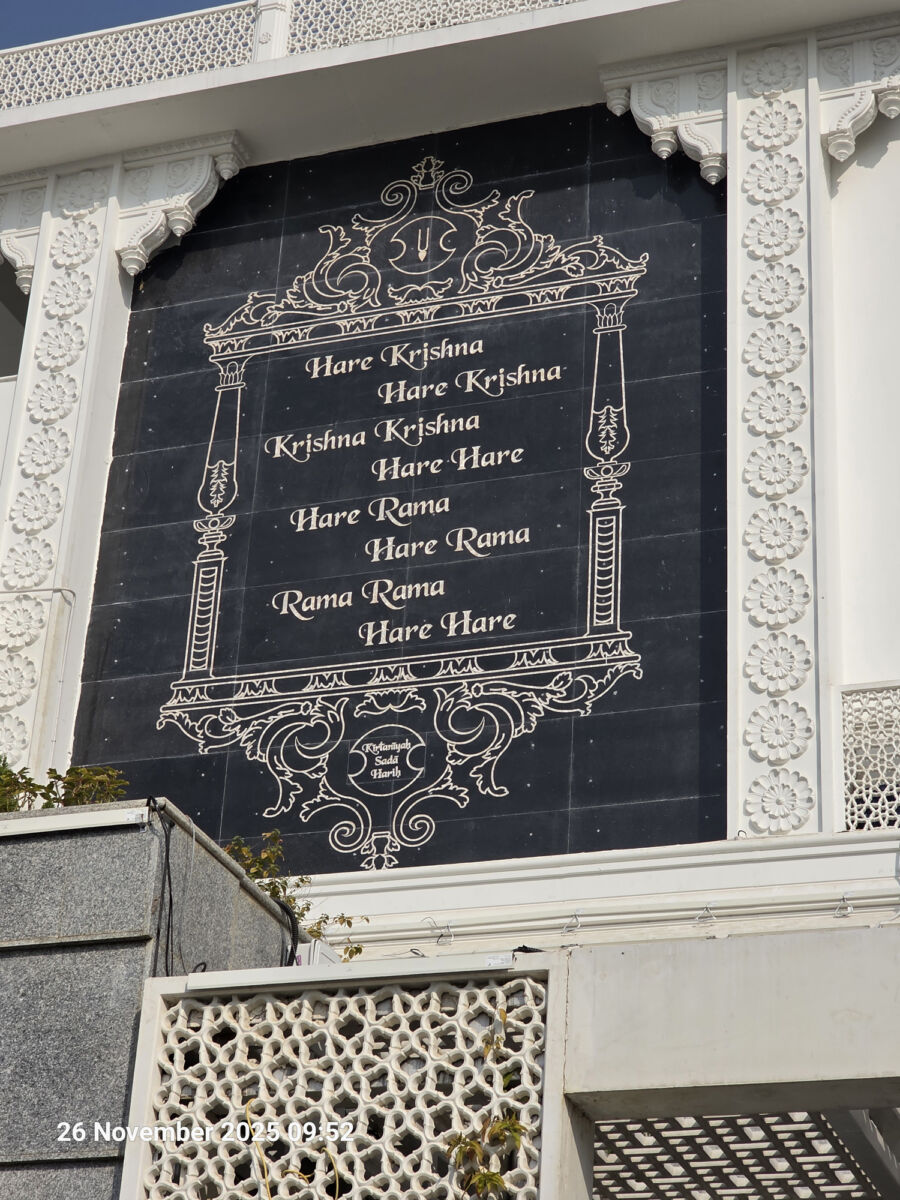 Hare Krishna
Hare Krishna
Krishna Krishna
Hare Hare
Hare Rama
Hare Rama
Rama Rama
Hare Hare
Kīrtanīyaḥ
Sadā
Hariḥ
26 November 2025 09:52